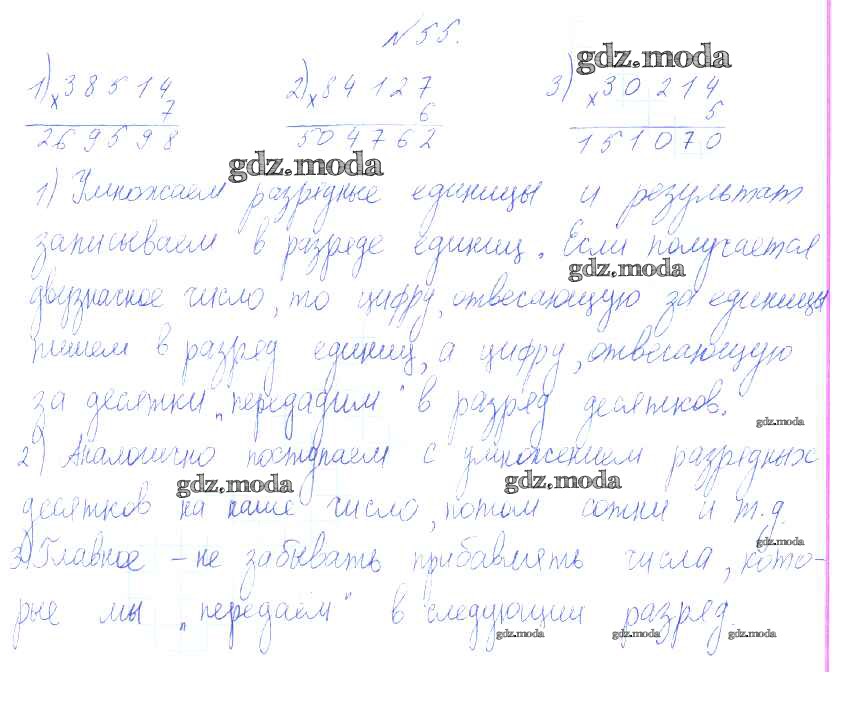 № 55.
gdz.moda
1) × 38514 2) × 84127 3) × 30214
7 6 5
269598 504762 151070
gdz.moda
1) Умножаем разрядные единицы и результат
записываем в разряде единиц. Если получается
gdz.moda
двузначное число, то цифру, отвечающую за единицы
пишем в разряд единиц, а цифру, отвечающую
за десятки „передадим" в разряд десятков.
gdz.moda
2) Аналогично поступаем с умножением разрядных
gdz.moda gdz.moda
десятков на наше число, потом сотни и т.д.
gdz.moda
3) Главное – не забывать прибавлять числа, кото-
рые мы „передаём" в следующий разряд.
gdz.moda gdz.moda gdz.moda